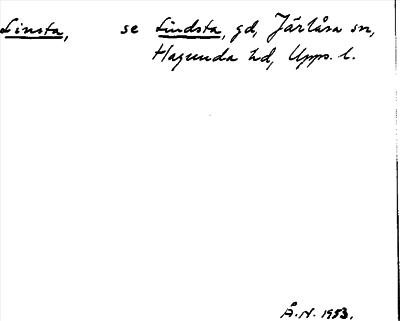 Linsta, se Lindsta, gd, Järlåsa sn,
Hagunda hd, Upps. l.
Å.N. 1953.